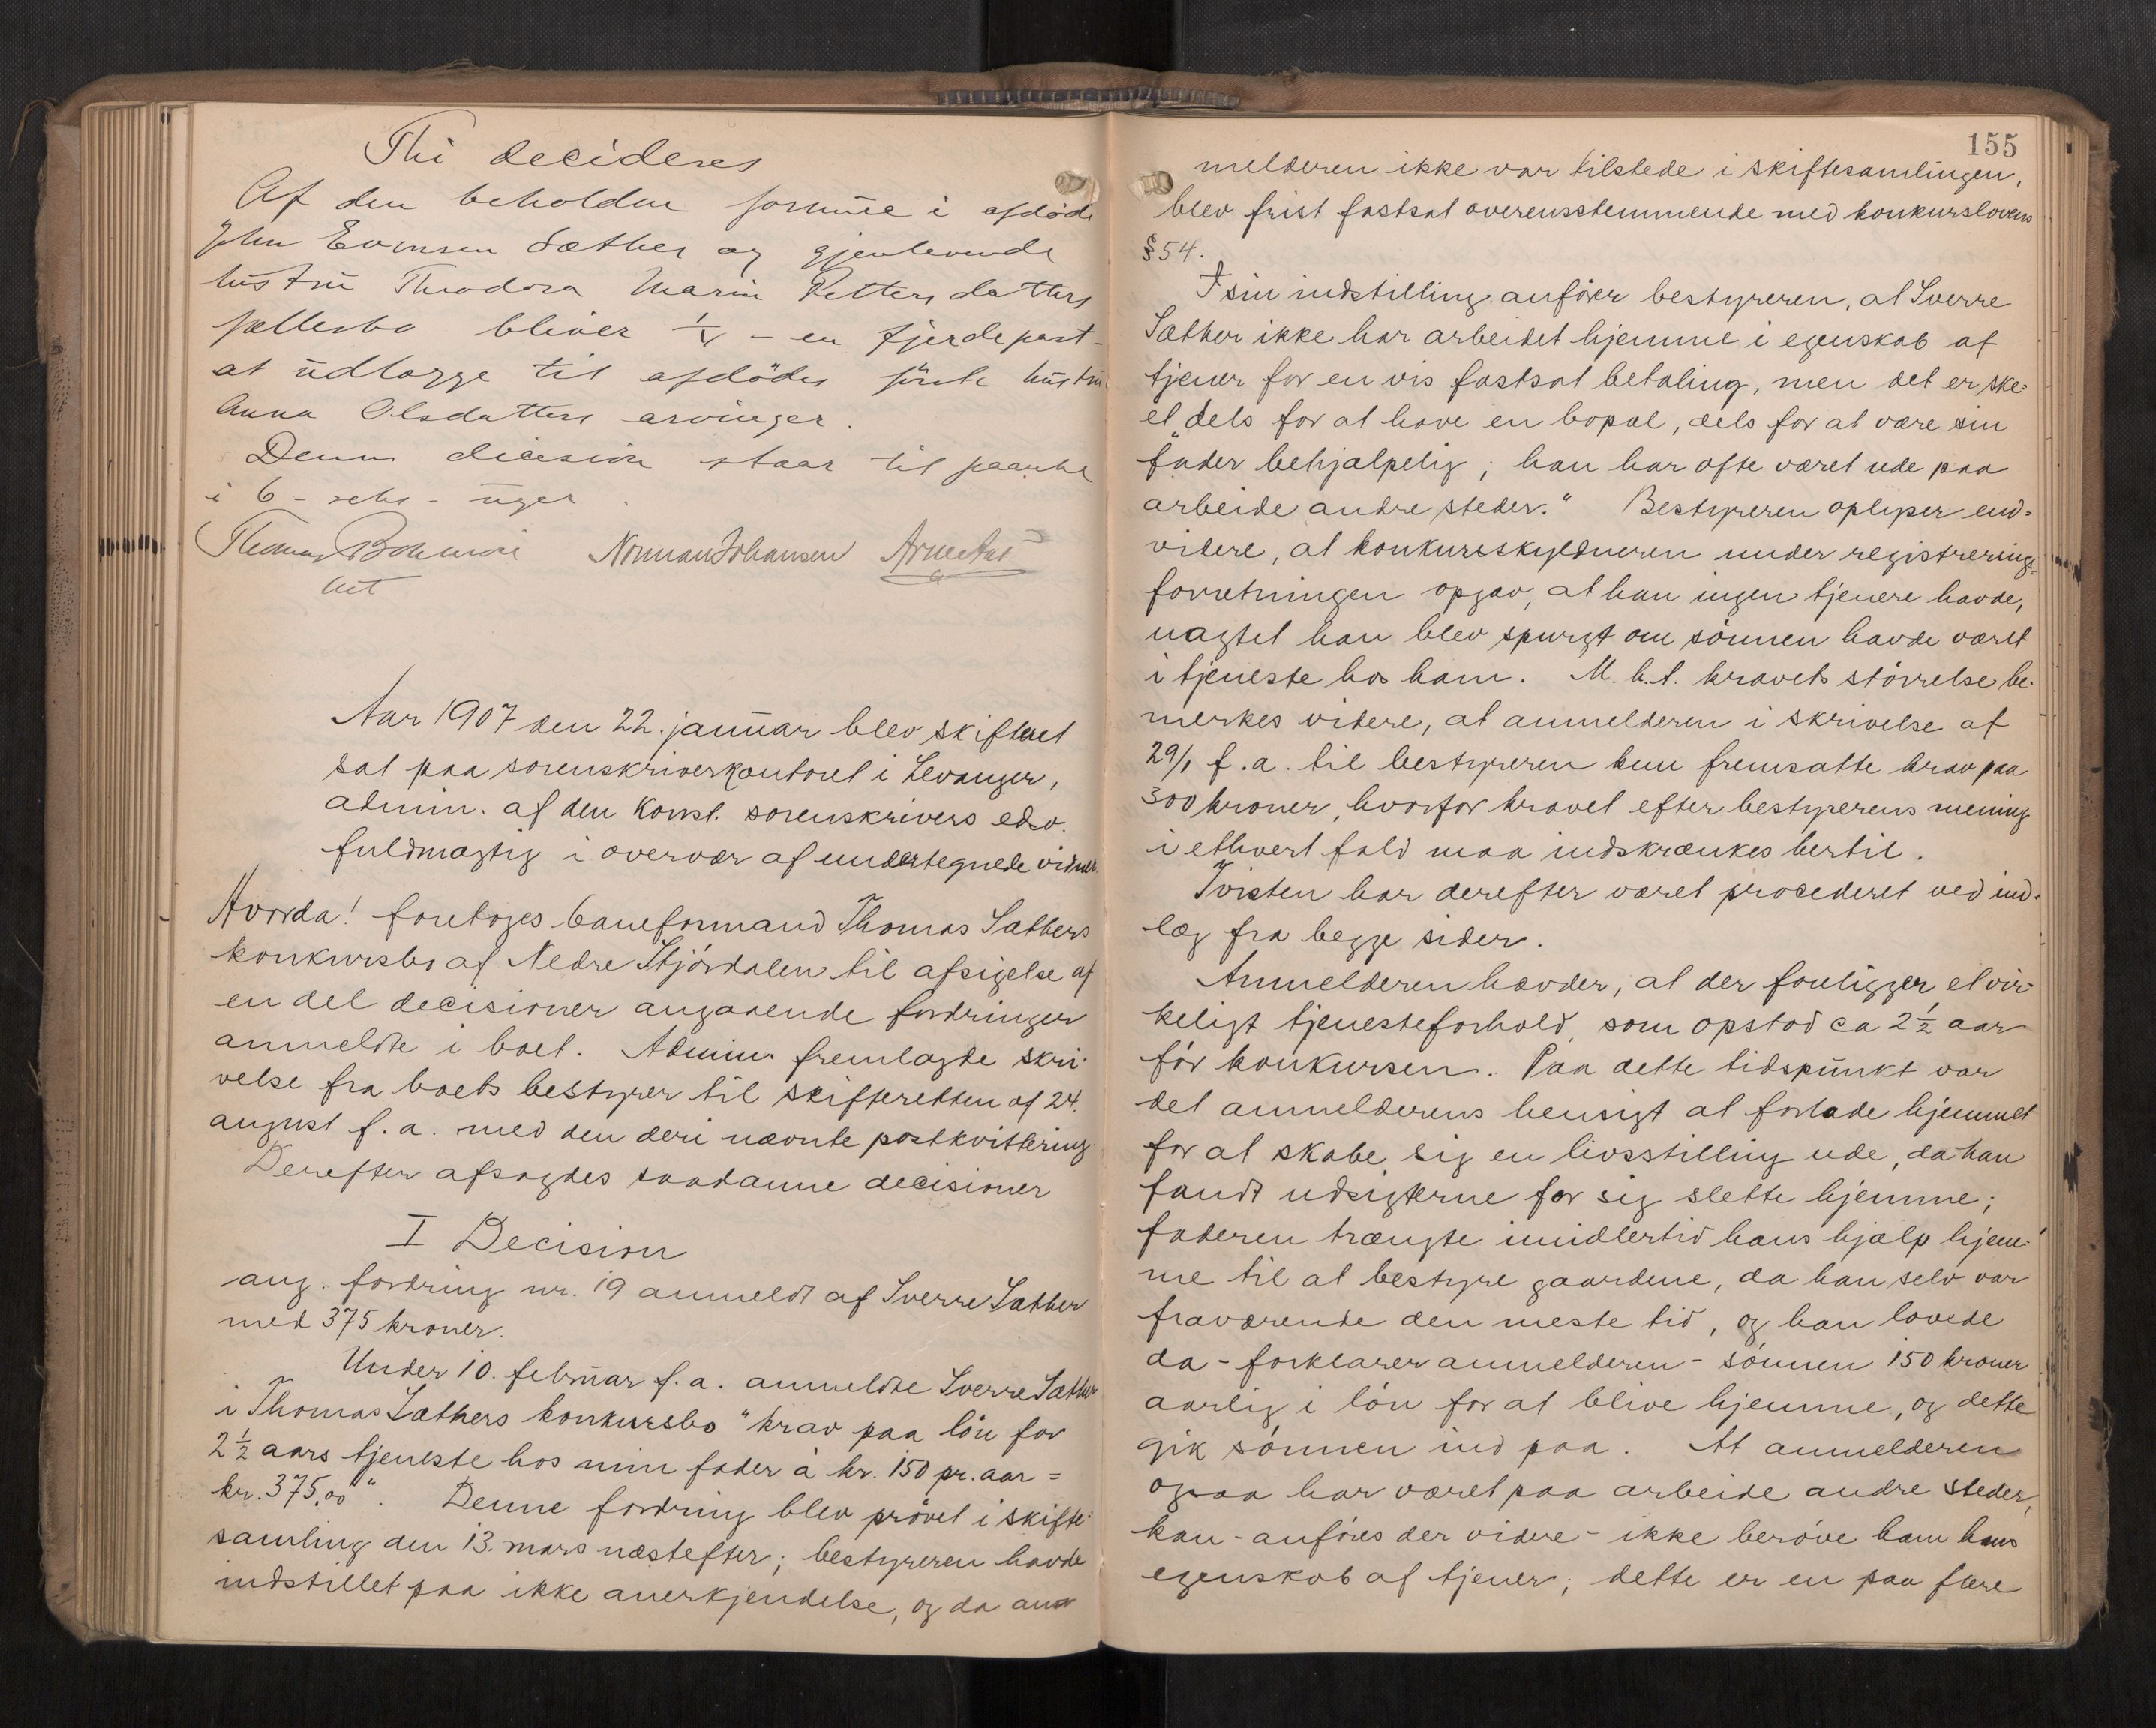 Thi decideres
Af den beholdne formue i afdøde
John Evensen Sæther og gjenlevende
hustru Theodora Marie Pettersdatters
fællesbo bliver 1/4 - en fjerdepart -
at udlægge til afdødes første hustru
Anna Olsdatters arvinger.
Denne decision staar til paaanke
i 6 - seks - uger.
Thomas
Norman Johansen
Aar 1907 den 22. januar blev skifteret
sat paa sorenskriverkontoret i Levanger,
admin. af den konst. sorenskrivers edsv.
fuldmægtig i overvær af undertegnede vidner.
Hvorda! foretoges baneformand Thomas Sæthers
konkursbo af Nedre Stjørdalen til afsigelse af
en del decisioner angaaende fordringer
anmeldte i boet. Admin. fremlagde skri-
velse fra boets bestyrer til skifteretten af 24.
august f.a. med den deri nævnte postkvittering
Derefter afsagdes saadanne decisioner
I Decision
ang. fordring nr. 19 anmeldt af Sverre Sæther
med 375 kroner.
Under 10. februar f.a. anmeldte Sverre Sæther
i Thomas Sæthers konkursbo "krav paa løn for
2½ aars tjeneste hos min fader à kr. 150 pr. aar =
kr. 375,00". Denne fordring blev prøvet i skifte-
samling den 13. mars næstefter; bestyreren havde
indstillet paa ikke anerkjendelse, og da an-
155
melderen ikke var tilstede i skiftesamlingen,
blev frist fastsat overensstemmende med konkurslovens
§ 54.
I sin indstilling anfører bestyreren, at Sverre
Sæther ikke har arbeidet hjemme i egenskab af
tjener for en vis fastsat betaling, men det er ske-
et "dels for at have en bopæl, dels for at være sin
fader behjælpelig; han har ofte været ude paa
arbeide andre steder." Bestyreren oplyser end-
videre, at konkursskyldneren under registrerings-
forretningen opgav, at han ingen tjenere havde,
uagtet han blev spurgt om sønnen havde været
i tjeneste hos ham. M.h.t. kravets størrelse be-
merkes videre, at anmelderen i skrivelse af
29/1 f.a. til bestyreren kun fremsatte krav paa
300 kroner, hvorfor kravet efter bestyrerens mening
i ethvert fald maa indskrænkes hertil.
Tvisten har derefter været procederet ved ind-
læg fra begge sider.
Anmelderen hævder, at der foreligger et vir-
keligt tjenesteforhold, som opstod ca 2½ aar
før konkursen. Paa dette tidspunkt var
det anmelderens hensigt at forlade hjemmet
for at skabe sig en livsstilling ude, da han
fandt udsigterne for sig slette hjemme;
faderen trængte imidlertid hans hjælp hjem-
me til at bestyre gaardene, da han selv var
fraværende den meste tid, og han lovede
da - forklarer anmelderen - sønnen 150 kroner
aarlig i løn for at blive hjemme, og dette
gik sønnen ind paa. At anmelderen
ogsaa har været paa arbeide andre steder,
kan - anføres der videre - ikke berøve ham hans
egenskab af tjener; dette er en paa flere